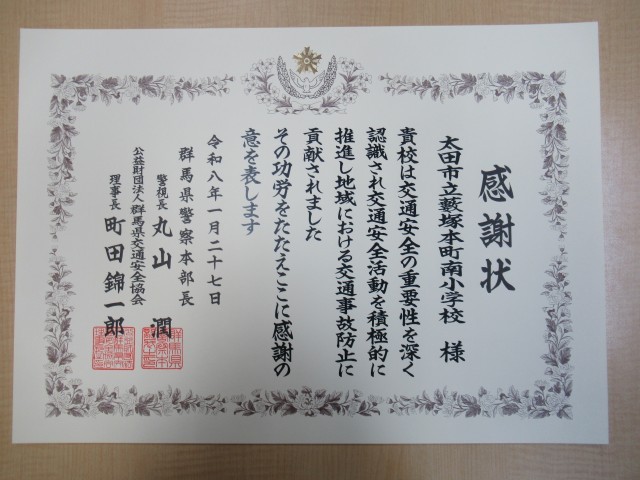 感謝状
太田市立藪塚本町南小学校 様
貴校は交通安全の重要性を深く
認識され交通安全活動を積極的に
推進し地域における交通事故防止に
貢献されました
その功労をたたえここに感謝の
意を表します
令和八年一月二十七日
群馬県警察本部長
警視長 丸山 潤
公益財団法人群馬県交通安全協会
理事長 町田錦一郎